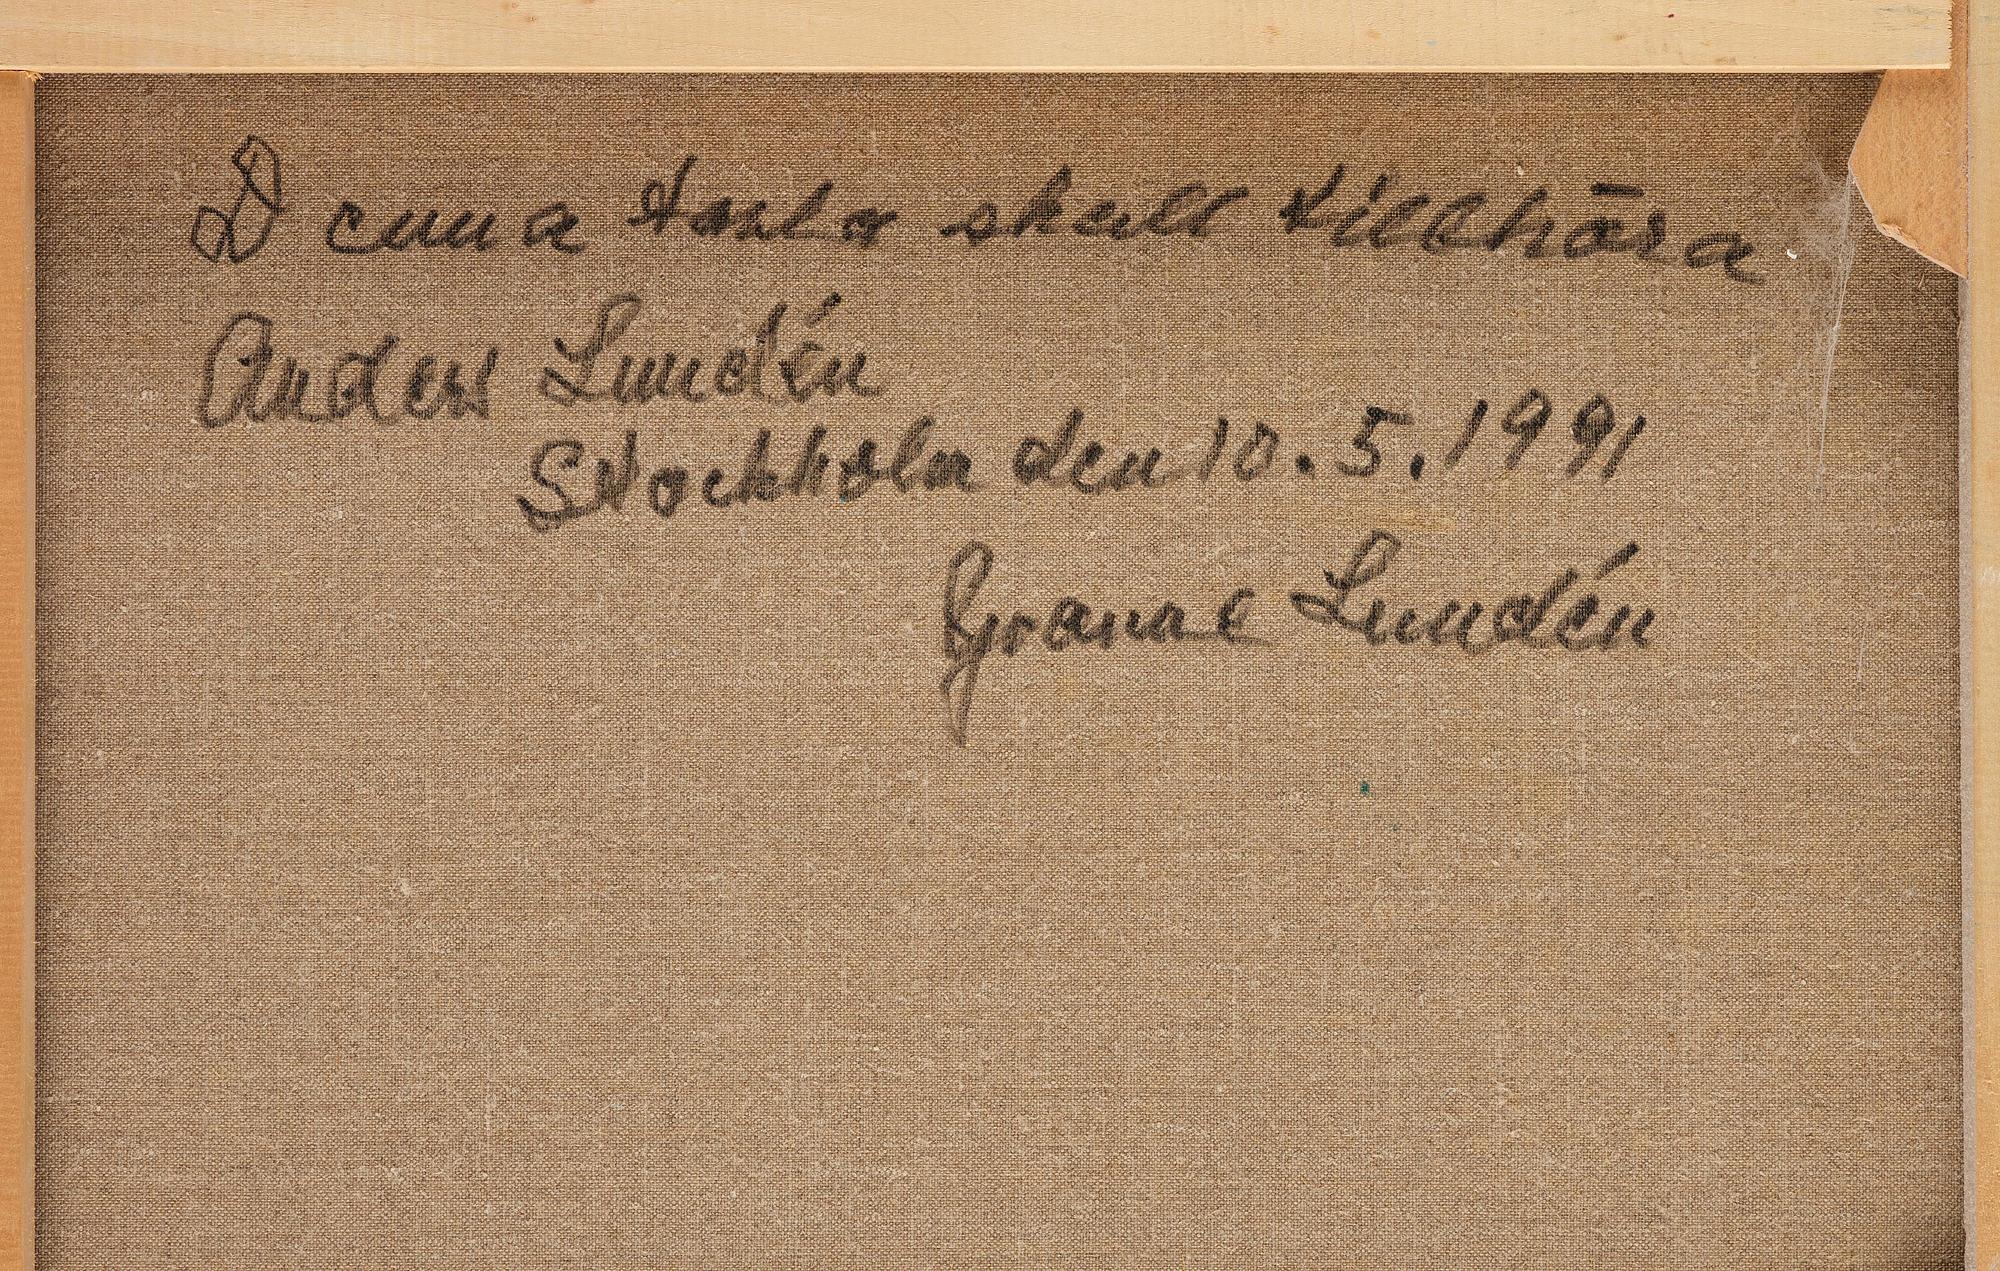 Denna tavla skall tillhöra
Anders Lundén
Stockholm den 10.5.1991
Lundén